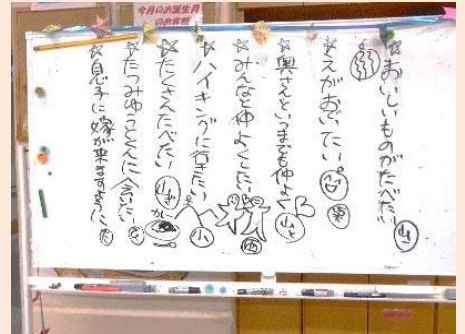 今月のお誕生月
のお客様
☆おいしいものがたべたい
☆えがおでいたい。
☆奥さんといつまでも仲よく
☆みんなと仲よくしたい
☆ハイキングに行きたい
☆たくさんたべたい
カレー
☆たつみゆうとくんに会いたい
☆息子に嫁が来ますように